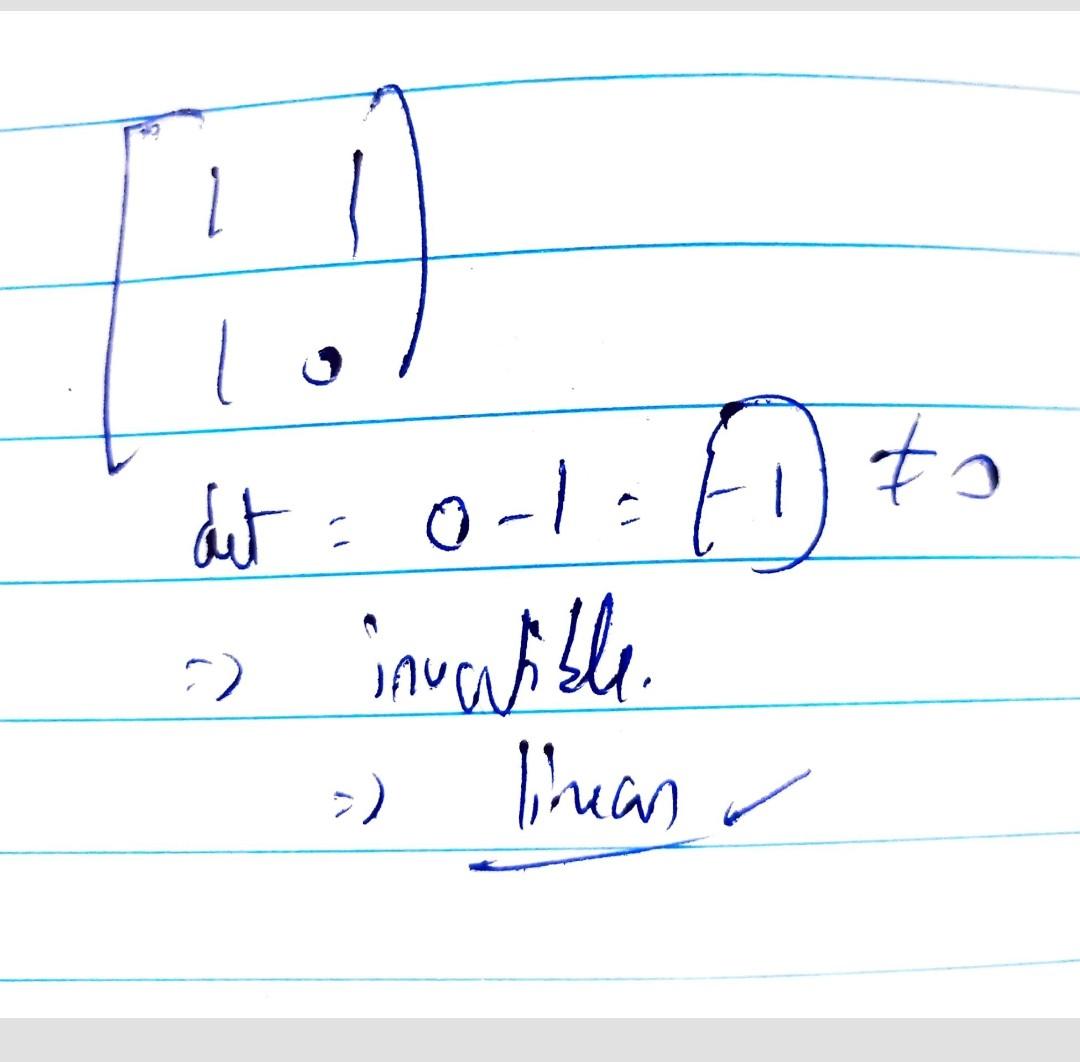 1 1
1 0
det = 0 - 1 = (-1) ≠ 0
=> invertible.
=> linear ✓